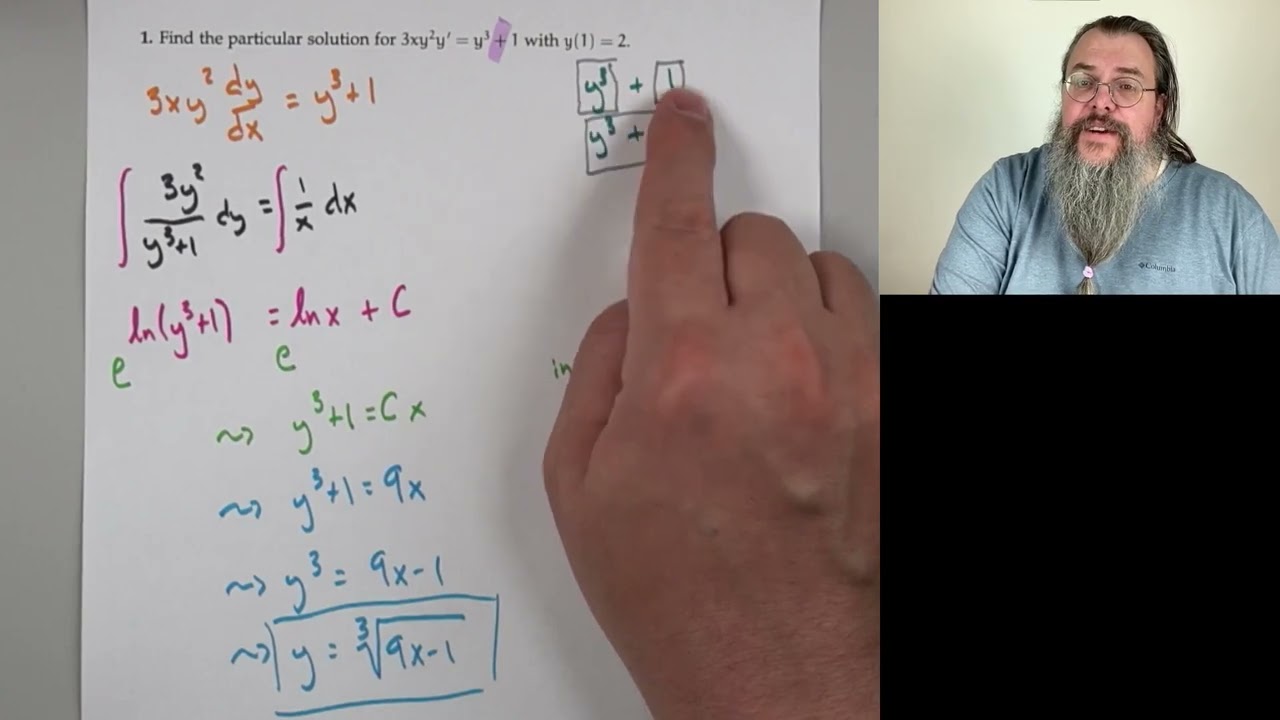 1. Find the particular solution for 3xy²y′ = y³ + 1 with y(1) = 2.
3xy² dy/dx = y³+1
∫ 3y²/y³+1 dy = ∫ 1/x dx
ln(y³+1) = ln x + C
e e
⇝ y³+1 = C x
⇝ y³+1 = 9x
⇝ y³ = 9x-1
⇝ y = ∛9x-1
y³ + 1
y³ +
in
Columbia